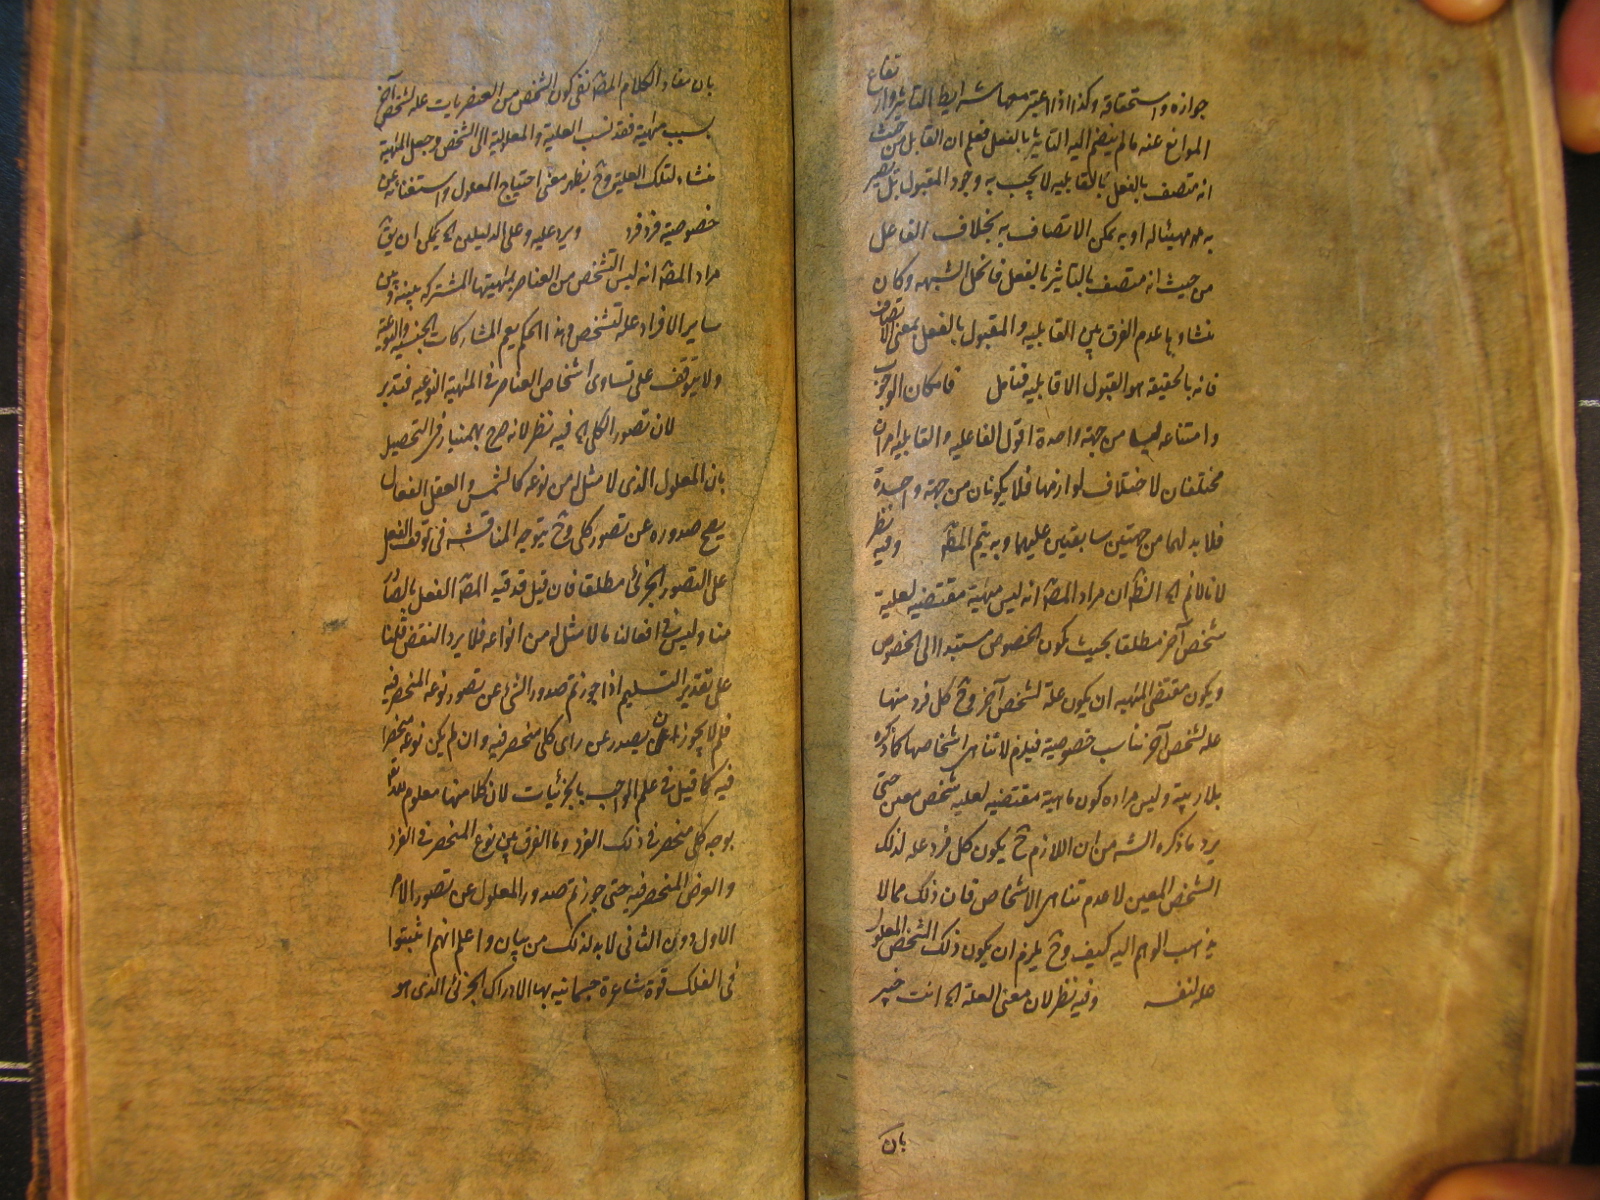 جوازه واستحقاقه وكذا اذا اعتبر معها شرايط التاثير وارتفاع
الموانع عنه مالم ينضم اليه التاثير بالفعل فعلم ان القابل من حيث
انه متصف بالفعل بالقابلية لا يجب به وجود المقبول بل يصير
به مهيئا له او به يمكن الاتصاف به بخلاف الفاعل
من حيث انه متصف بالتاثير بالفعل فانحل الشبهه وكان
منشاوها عدم الفرق بين القابليه والمقبول بالفعل بمعنى الاتصاف
فانه بالحقيقه هو القبول لا القابليه فتامل فامكان الوجوب
وامتناعه من جهة واحدة اقول الفاعليه والقابليه امران
مختلفان لاختلاف لوازمها فلا يكونان من جهة واحدة
فلا بد لهما من جهتين سابقتين عليهما وبه يتم المقص وفيه نظر
لانا لانم الخ الظ ان مراد المص انه ليس مهية مقتضيه لعلية
شخص آخر مطلقا بحيث يكون الخصوص مستندا الى الخصوص
ويكون مقتضى المهيه ان يكون علة لشخص آخر وح كل فرد منها
علة لشخص آخر تناسب خصوصية فيلزم لا تناهى اشخاصها كما ذكره
بلا ريبة وليس مراده كون ماهية مقتضيه لعلية شخص معين حتى
يرد ما ذكره الشه من ان اللازم ح يكون كل فرد علة لذلك
الشخص المعين لا عدم تناهى الاشخاص فان ذلك مما لا
يذهب الوهم اليه كيف وح يلزم ان يكون ذلك الشخص المعلول
علة لنفسه وفيه نظر لان معنى العلة الخ انت خبير
بان
بان مفاد الكلام المص نفى كون الشخص من العنصريات علة لشخص آخر
بسبب مهية فقد نسب العلية والمعلولية الى الشخص وجعل المهية
منشاء لتلك العلية وح يظهر معنى احتياج المعلول واستغنائه عن
خصوصية فرد فرد ويرد عليه وعلى الدليلين الخ يمكن ان يق
مراد المص انه ليس الشخص من العناصر بمهيتها المشتركه بينه وبين
ساير الافراد علة لشخص وهذا الحكم يعم المشاركات الجنسيه والنوعية
ولا يتوقف على تساوى اشخاص العناصر فى المهية النوعيه فتدبر
لان تصور الكلى الخ فيه نظر لانه صرح بهمنيار فى التحصيل
بان المعلول الذى لا مثل له من نوعه كالشمس والعقل الفعال
يصح صدوره عن تصور كلى وح يتوجه المناقشه فى توقف الفعل
على التصور الجزئى مطلقا فان قيل قد قيد المص الفعل بالصادر
منا وليس فى افعالنا ما لا مثل له من انواعه فلا يرد النقض قلنا
على تقدير التسليم اذا جوزتم صدور الشئ عن تصور نوعه المنحصر فيه
فلم لا يجوز ان يصدر عن راى كلى منحصر فيه وان لم يكن نوعه منحصرا
فيه كما قيل فى علم الواجب بالجزئيات لان كلا منها معلوم له تعا
بوجه كلى منحصر فى ذلك الفرد وما الفرق بين نوع المنحصر فى الفرد
والعرضى المنحصر فيه حتى جوزتم صدور المعلول عن تصور الامر
الاول دون الثانى لا بد لذلك من بيان واعلم انهم اثبتوا
فى الفلك قوة شاعرة جسمانيه بها الادراك الجزئى الذى هو